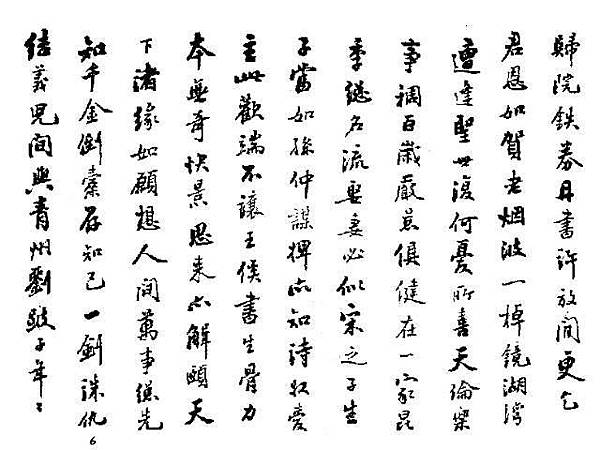 歸院鉄券丹書許放閒更乞
君恩如賀老烟波一棹鏡湖灣
遭逢聖世復何憂所喜天倫樂
事稠百歲嚴慈俱健在一家昆
季總名流娶妻必似宋之子生
子當如孫仲謀婢亦知詩奴愛
主此歡端不讓王侯書生骨力
本無奇快景思来亦解頤天
下諸緣如願想人間萬事總先
知千金倒橐存知己一劍誅仇
結義兒間與青州劉跛子年〻